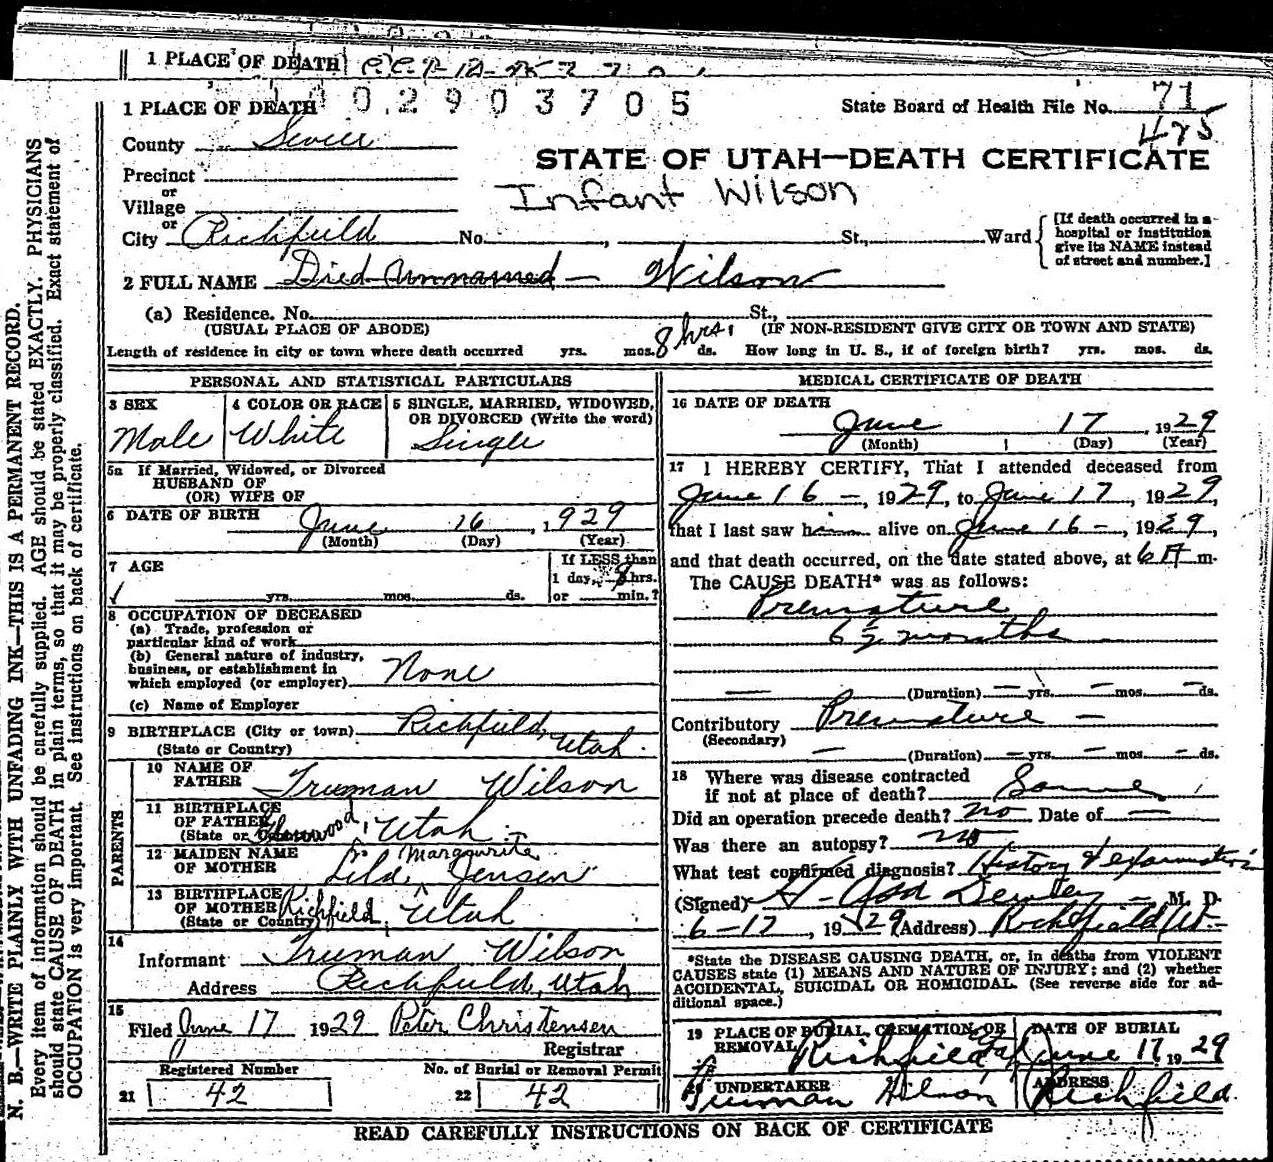 1 PLACE OF DEATH
1 PLACE OF DEATH 0 2 9 0 3 7 0 5 State Board of Health File No. 71
485
County Sevier
STATE OF UTAH—DEATH CERTIFICATE
Precinct
or
Village
Infant Wilson
or
City Richfield No. , St., Ward
[If death occurred in a hospital or institution give its NAME instead of street and number.]
2 FULL NAME Died Unnamed — Wilson
(a) Residence. No. St.,
(USUAL PLACE OF ABODE) (IF NON-RESIDENT GIVE CITY OR TOWN AND STATE)
Length of residence in city or town where death occurred yrs. mos. 8 hrs. ds. How long in U. S., if of foreign birth? yrs. mos. ds.
PERSONAL AND STATISTICAL PARTICULARS
3 SEX
Male
4 COLOR OR RACE
White
5 SINGLE, MARRIED, WIDOWED, OR DIVORCED (Write the word)
Single
5a If Married, Widowed, or Divorced
HUSBAND OF
(OR) WIFE OF
6 DATE OF BIRTH June 16 , 1929
(Month) (Day) (Year)
7 AGE
yrs. mos. ds.
If LESS than
1 day, 8 hrs.
or min.?
8 OCCUPATION OF DECEASED
(a) Trade, profession or
particular kind of work
(b) General nature of industry,
business, or establishment in
which employed (or employer) None
(c) Name of Employer
9 BIRTHPLACE (City or town) Richfield,
(State or Country) Utah.
PARENTS
10 NAME OF
FATHER Truman Wilson
11 BIRTHPLACE
OF FATHER
(State or Glenwood, Utah
12 MAIDEN NAME Marguirite
OF MOTHER Lila Jensen
13 BIRTHPLACE
OF MOTHER Richfield, Utah
(State or Country)
14
Informant Truman Wilson
Address Richfield, Utah
15
Filed June 17 1929 Peter Christensen
Registrar
Registered Number No. of Burial or Removal Permit
21 42 22 42
MEDICAL CERTIFICATE OF DEATH
16 DATE OF DEATH
June 17 , 1929
(Month) (Day) (Year)
17 I HEREBY CERTIFY, That I attended deceased from
June 16 – , 1929, to June 17, 1929,
that I last saw him alive on June 16 – , 1929,
and that death occurred, on the date stated above, at 6 A m.
The CAUSE DEATH* was as follows:
Premature
6 ½ months
— (Duration) — yrs. — mos. — ds.
Contributory Premature —
(Secondary)
— (Duration) — yrs. — mos. — ds.
18 Where was disease contracted
if not at place of death? Same
Did an operation precede death? no Date of —
Was there an autopsy? no
What test confirmed diagnosis? History & examination
(Signed) M. D.
6-17 , 1929 (Address) Richfield Ut.
*State the DISEASE CAUSING DEATH, or, in deaths from VIOLENT
CAUSES state (1) MEANS AND NATURE OF INJURY; and (2) whether
ACCIDENTAL, SUICIDAL OR HOMICIDAL. (See reverse side for ad-
ditional space.)
19 PLACE OF BURIAL, CREMATION, OR
REMOVAL Richfield Utah
DATE OF BURIAL
June 17 1929
20 UNDERTAKER
Truman Wilson
ADDRESS
Richfield.
READ CAREFULLY INSTRUCTIONS ON BACK OF CERTIFICATE
N. B.—WRITE PLAINLY WITH UNFADING INK—THIS IS A PERMANENT RECORD.
Every item of information should be carefully supplied. AGE should be stated EXACTLY. PHYSICIANS
should state CAUSE OF DEATH in plain terms, so that it may be properly classified. Exact statement of
OCCUPATION is very important. See instructions on back of certificate.